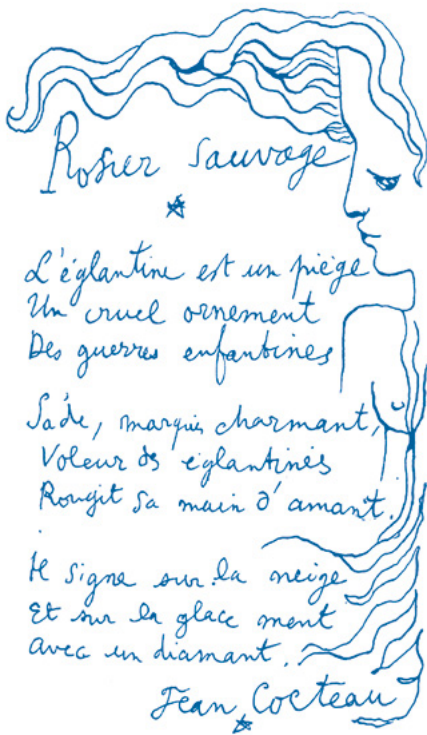 Rosier Sauvage
L'églantine est un piège
Un cruel ornement
Des guerres enfantines
Sade, marquis charmant,
Voleur ds églantines
Rougit sa main d'amant.
Il signe sur la neige
Et sur la glace ment
avec un diamant.
Jean Cocteau